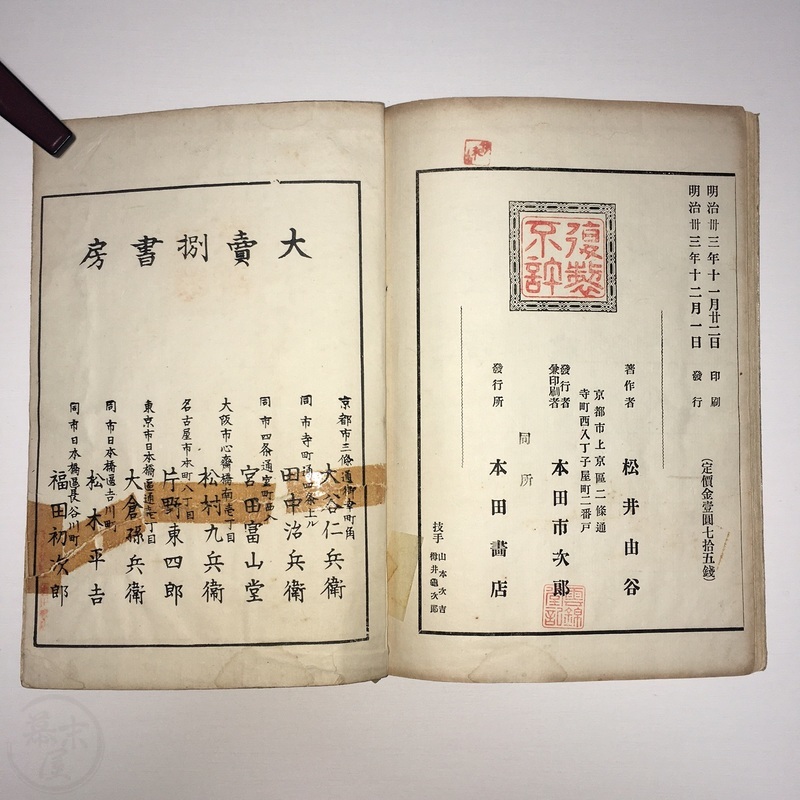 明治卅三年十一月廿二日 印刷
明治卅三年十二月一日 發行
(定價金壹圓七拾五錢)
復製不許
著作者 松井由谷
京都市上京區二條通
寺町西入丁子屋町二番戸
發行者
兼印刷者 本田市次郎
同所
發行所 本田書店
技手 山本次吉
樽井龜次郎
雲錦堂記
大賣捌書房
京都市三條通御幸町角
大谷仁兵衛
同市寺町通四条上ル
田中治兵衛
同市四条通寺町西入
宮田富山堂
大阪市心齋橋南壱丁目
松村九兵衛
名古屋市本町八丁目
片野東四郎
東京市日本橋區通壱丁目
大倉孫兵衛
同市日本橋區吉川町
松木平吉
同市日本橋區長谷川町
福田初次郎
幕末屋